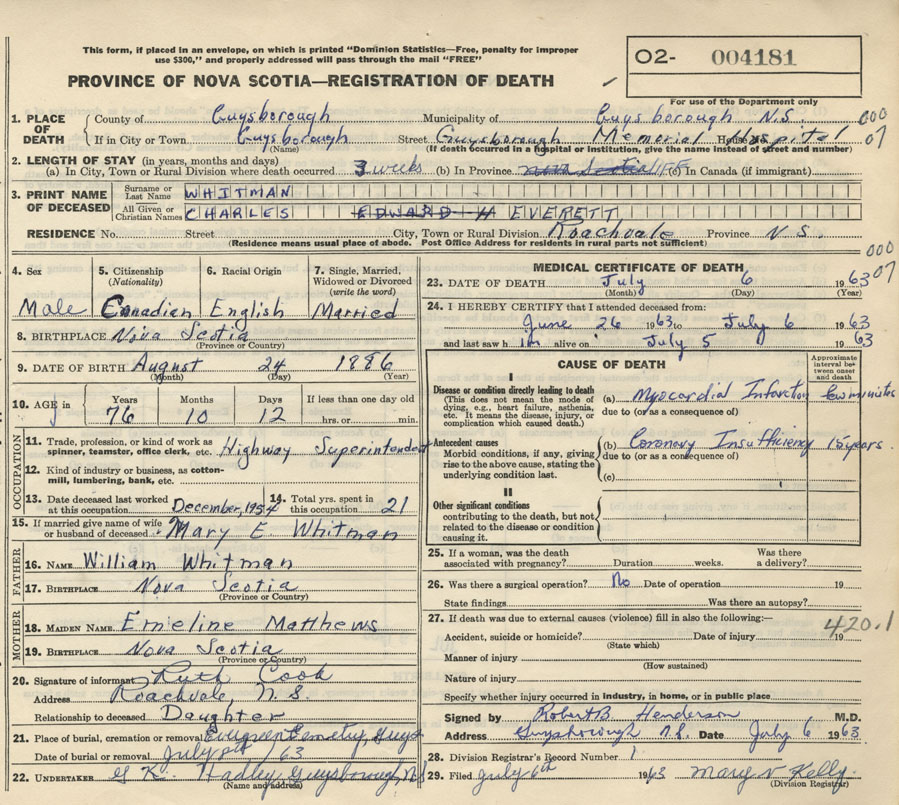 This form, if placed in an envelope, on which is printed "Dominion Statistics—Free, penalty for improper
use $300," and properly addressed will pass through the mail "FREE"
O2- 004181
PROVINCE OF NOVA SCOTIA—REGISTRATION OF DEATH
For use of the Department only
1. PLACE OF DEATH County of Guysborough Municipality of Guysborough N.S. 000
If in City or Town Guysborough Street Guysborough Memorial Hospital House No. 07
(Name) (If death occurred in a hospital or institution, give the name instead of street and number)
2. LENGTH OF STAY (in years, months and days)
(a) In City, Town or Rural Division where death occurred 3 weeks (b) In Province Nova Scotia LIFE (c) In Canada (if immigrant)
3. PRINT NAME OF DECEASED Surname or Last Name WHITMAN
All Given or Christian Names CHARLES EDWARD H EVERETT
RESIDENCE No. Street City, Town or Rural Division Roachvale Province N.S.
(Residence means usual place of abode. Post Office Address for residents in rural parts not sufficient)
000
07
4. Sex 5. Citizenship (Nationality) 6. Racial Origin 7. Single, Married, Widowed or Divorced (write the word)
Male Canadian English Married
8. BIRTHPLACE Nova Scotia
(Province or Country)
9. DATE OF BIRTH August 24 1886
(Month) (Day) (Year)
10. AGE Years Months Days If less than one day old
76 10 12 hrs. or min.
OCCUPATION
11. Trade, profession, or kind of work as spinner, teamster, office clerk, etc. Highway Superintendent
12. Kind of industry or business, as cotton-mill, lumbering, bank, etc.
13. Date deceased last worked at this occupation December, 1954 14. Total yrs. spent in this occupation 21
15. If married give name of wife or husband of deceased Mary E Whitman
FATHER
16. NAME William Whitman
17. BIRTHPLACE Nova Scotia
(Province or Country)
MOTHER
18. MAIDEN NAME Emieline Matthews
19. BIRTHPLACE Nova Scotia
(Province or Country)
20. Signature of informant Ruth Cook
Address Roachvale N.S.
Relationship to deceased Daughter
21. Place of burial, cremation or removal Evergreen Cemetry, Guys
Date of burial or removal July 63
22. UNDERTAKER G K. Hadley, Guysborough, NS
(Name and address)
MEDICAL CERTIFICATE OF DEATH
23. DATE OF DEATH July 6 1963
(Month) (Day) (Year)
24. I HEREBY CERTIFY that I attended deceased from:
June 26 1963 to July 6 1963
and last saw h im alive on July 5 1963
CAUSE OF DEATH
Approximate interval between onset and death
I
Disease or condition directly leading to death (a) Myocardial Infarction few minutes
(This does not mean the mode of dying, e.g., heart failure, asthenia, etc. It means the disease, injury, or complication which caused death.) due to (or as a consequence of)
Antecedent causes (b) Coronary Insufficiency 15 years.
Morbid conditions, if any, giving rise to the above cause, stating the underlying condition last. due to (or as a consequence of)
(c)
II
Other significant conditions
contributing to the death, but not related to the disease or condition causing it.
25. If a woman, was the death associated with pregnancy? Duration weeks. Was there a delivery?
26. Was there a surgical operation? No Date of operation 19
State findings Was there an autopsy?
27. If death was due to external causes (violence) fill in also the following:—
420.1
Accident, suicide or homicide? Date of injury 19
(State which)
Manner of injury
(How sustained)
Nature of injury
Specify whether injury occurred in industry, in home, or in public place
Signed by Robert B Henderson M.D.
Address Guysborough N.S. Date July 6 1963
28. Division Registrar's Record Number 1
29. Filed July 6th 1963 Mary V Kelly.
(Division Registrar)